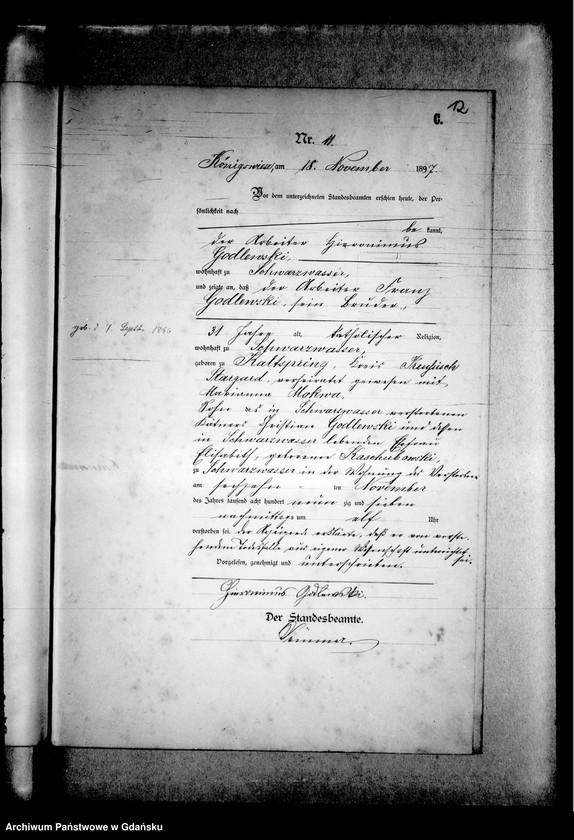 12
C.
Nr. 11.
Königswiese, am 18. November 1897.
Vor dem unterzeichneten Standesbeamten erschien heute, der Per-
sönlichkeit nach
be kannt,
der Arbeiter Hieronimus
Godlewski,
wohnhaft zu Schwarzwasser,
und zeigte an, daß der Arbeiter Franz
Godlewski, sein Bruder,
geb. d. 7. Septbr. 1866
31 Jahre alt, katholischer Religion,
wohnhaft zu Schwarzwasser,
geboren zu Kaltspring, Kreis Preußisch
Stargard, verheirathet gewesen mit
Marianna Mokwa,
Sohn des in Schwarzwasser verstorbenen
Käthners Christian Godlewski und dessen
in Schwarzwasser lebenden Ehefrau
Elisabeth, geborenen Kaschubowski,
zu Schwarzwasser in der Wohnung des Verstorbenen
am sechzehn ten November
des Jahres tausend acht hundert neun zig und sieben
nachmittags um elf Uhr
verstorben sei. Der Anzeigende erklärte, daß er von vorste-
hendem Todesfalle aus eigener Wissenschaft unterrichtet sei.
Vorgelesen, genehmigt und unterschrieben.
Hieronimus Godlewski.
Der Standesbeamte.
Archiwum Państwowe w Gdańsku